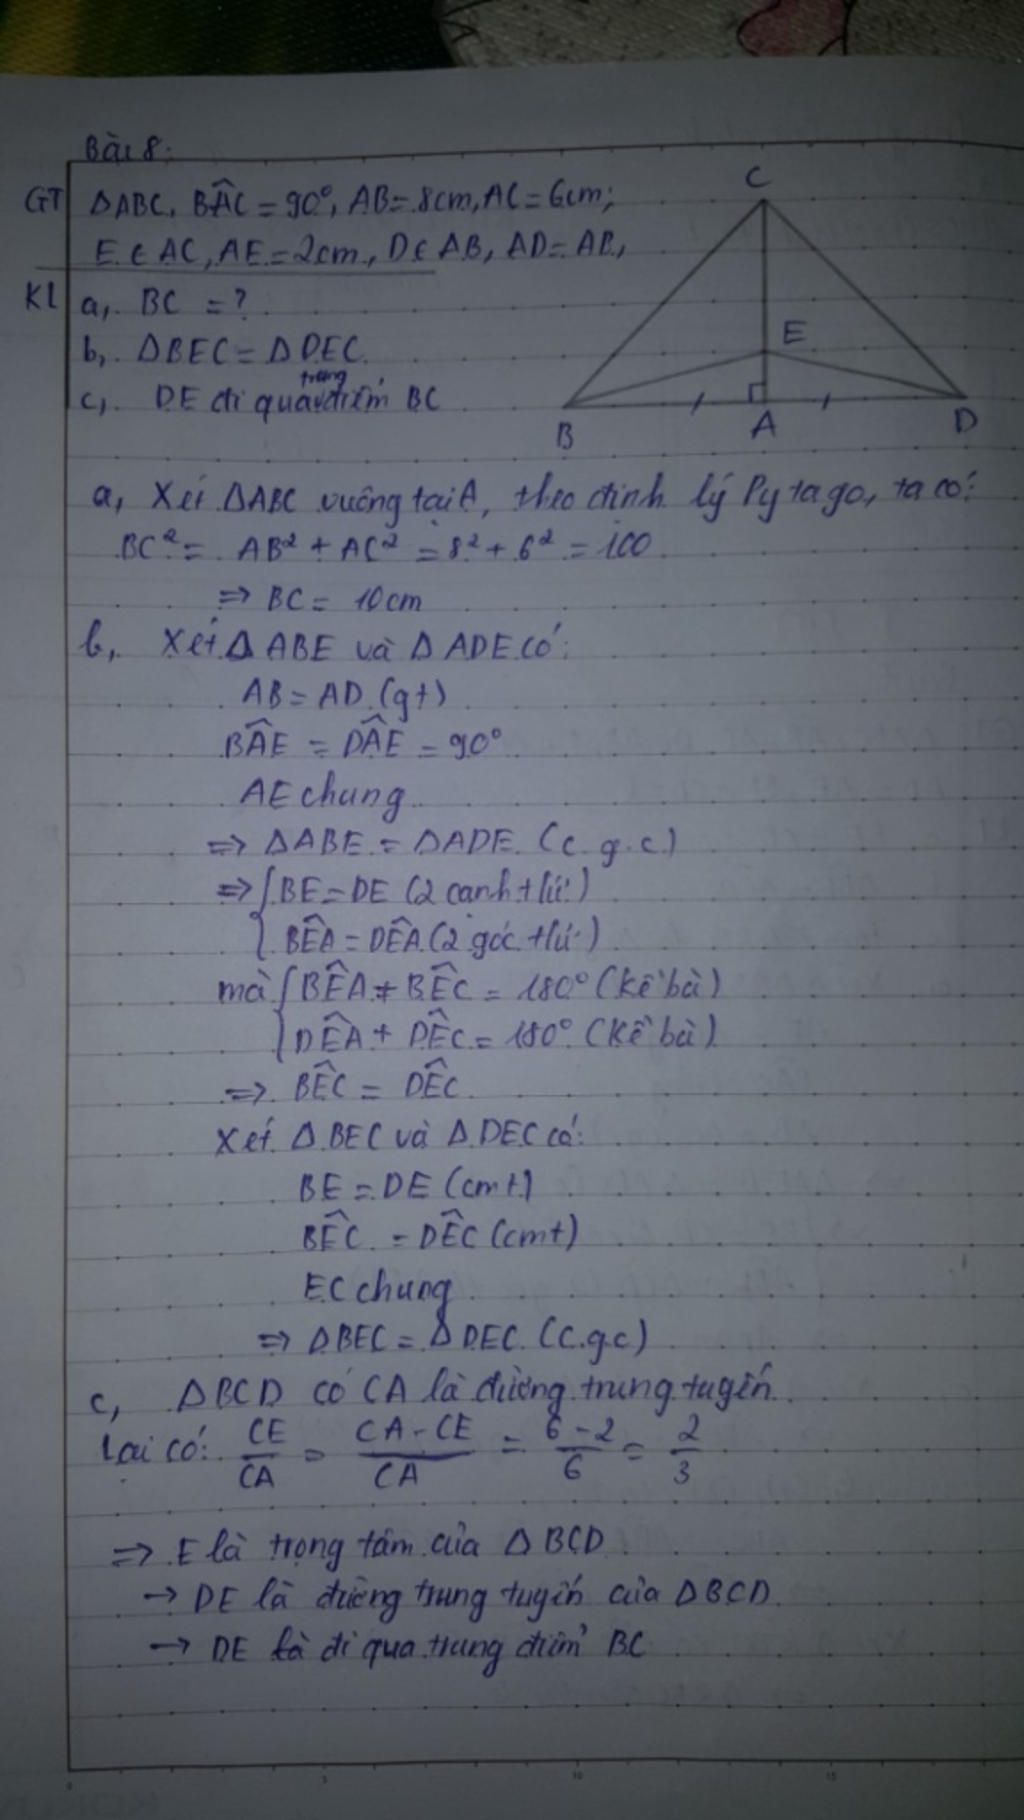 Bài 8:
GT ΔABC, BÂC = 90°, AB = 8cm, AC = 6cm;
E ∈ AC, AE = 2cm, D ∈ AB, AD = AB,
KL a, BC = ?
b, ΔBEC = ΔDEC
c, DE đi qua trung điểm BC
C
E
B
A
D
a, Xét ΔABC vuông tại A, theo định lý Pytago, ta có:
BC² = AB² + AC² = 8² + 6² = 100
⇒ BC = 10cm
b, Xét Δ ABE và Δ ADE có:
AB = AD (gt)
BÂE = DÂE = 90°
AE chung
⇒ ΔABE = ΔADE (c.g.c)
⇒ { BE = DE (2 cạnh tứ)
BÊA = DÊA (2 góc tứ)
mà { BÊA + BÊC = 180° (kề bù)
DÊA + DÊC = 180° (kề bù)
⇒ BÊC = DÊC
Xét Δ BEC và Δ DEC có:
BE = DE (cmt)
BÊC = DÊC (cmt)
EC chung
⇒ ΔBEC = ΔDEC (c.g.c)
c, ΔBCD có CA là đường trung tuyến
Lại có: CE/CA = (CA - CE)/CA = (6 - 2)/6 = 2/3
⇒ E là trọng tâm của Δ BCD
→ DE là đường trung tuyến của ΔBCD
→ DE là đi qua trung điểm BC
0 5 10 15